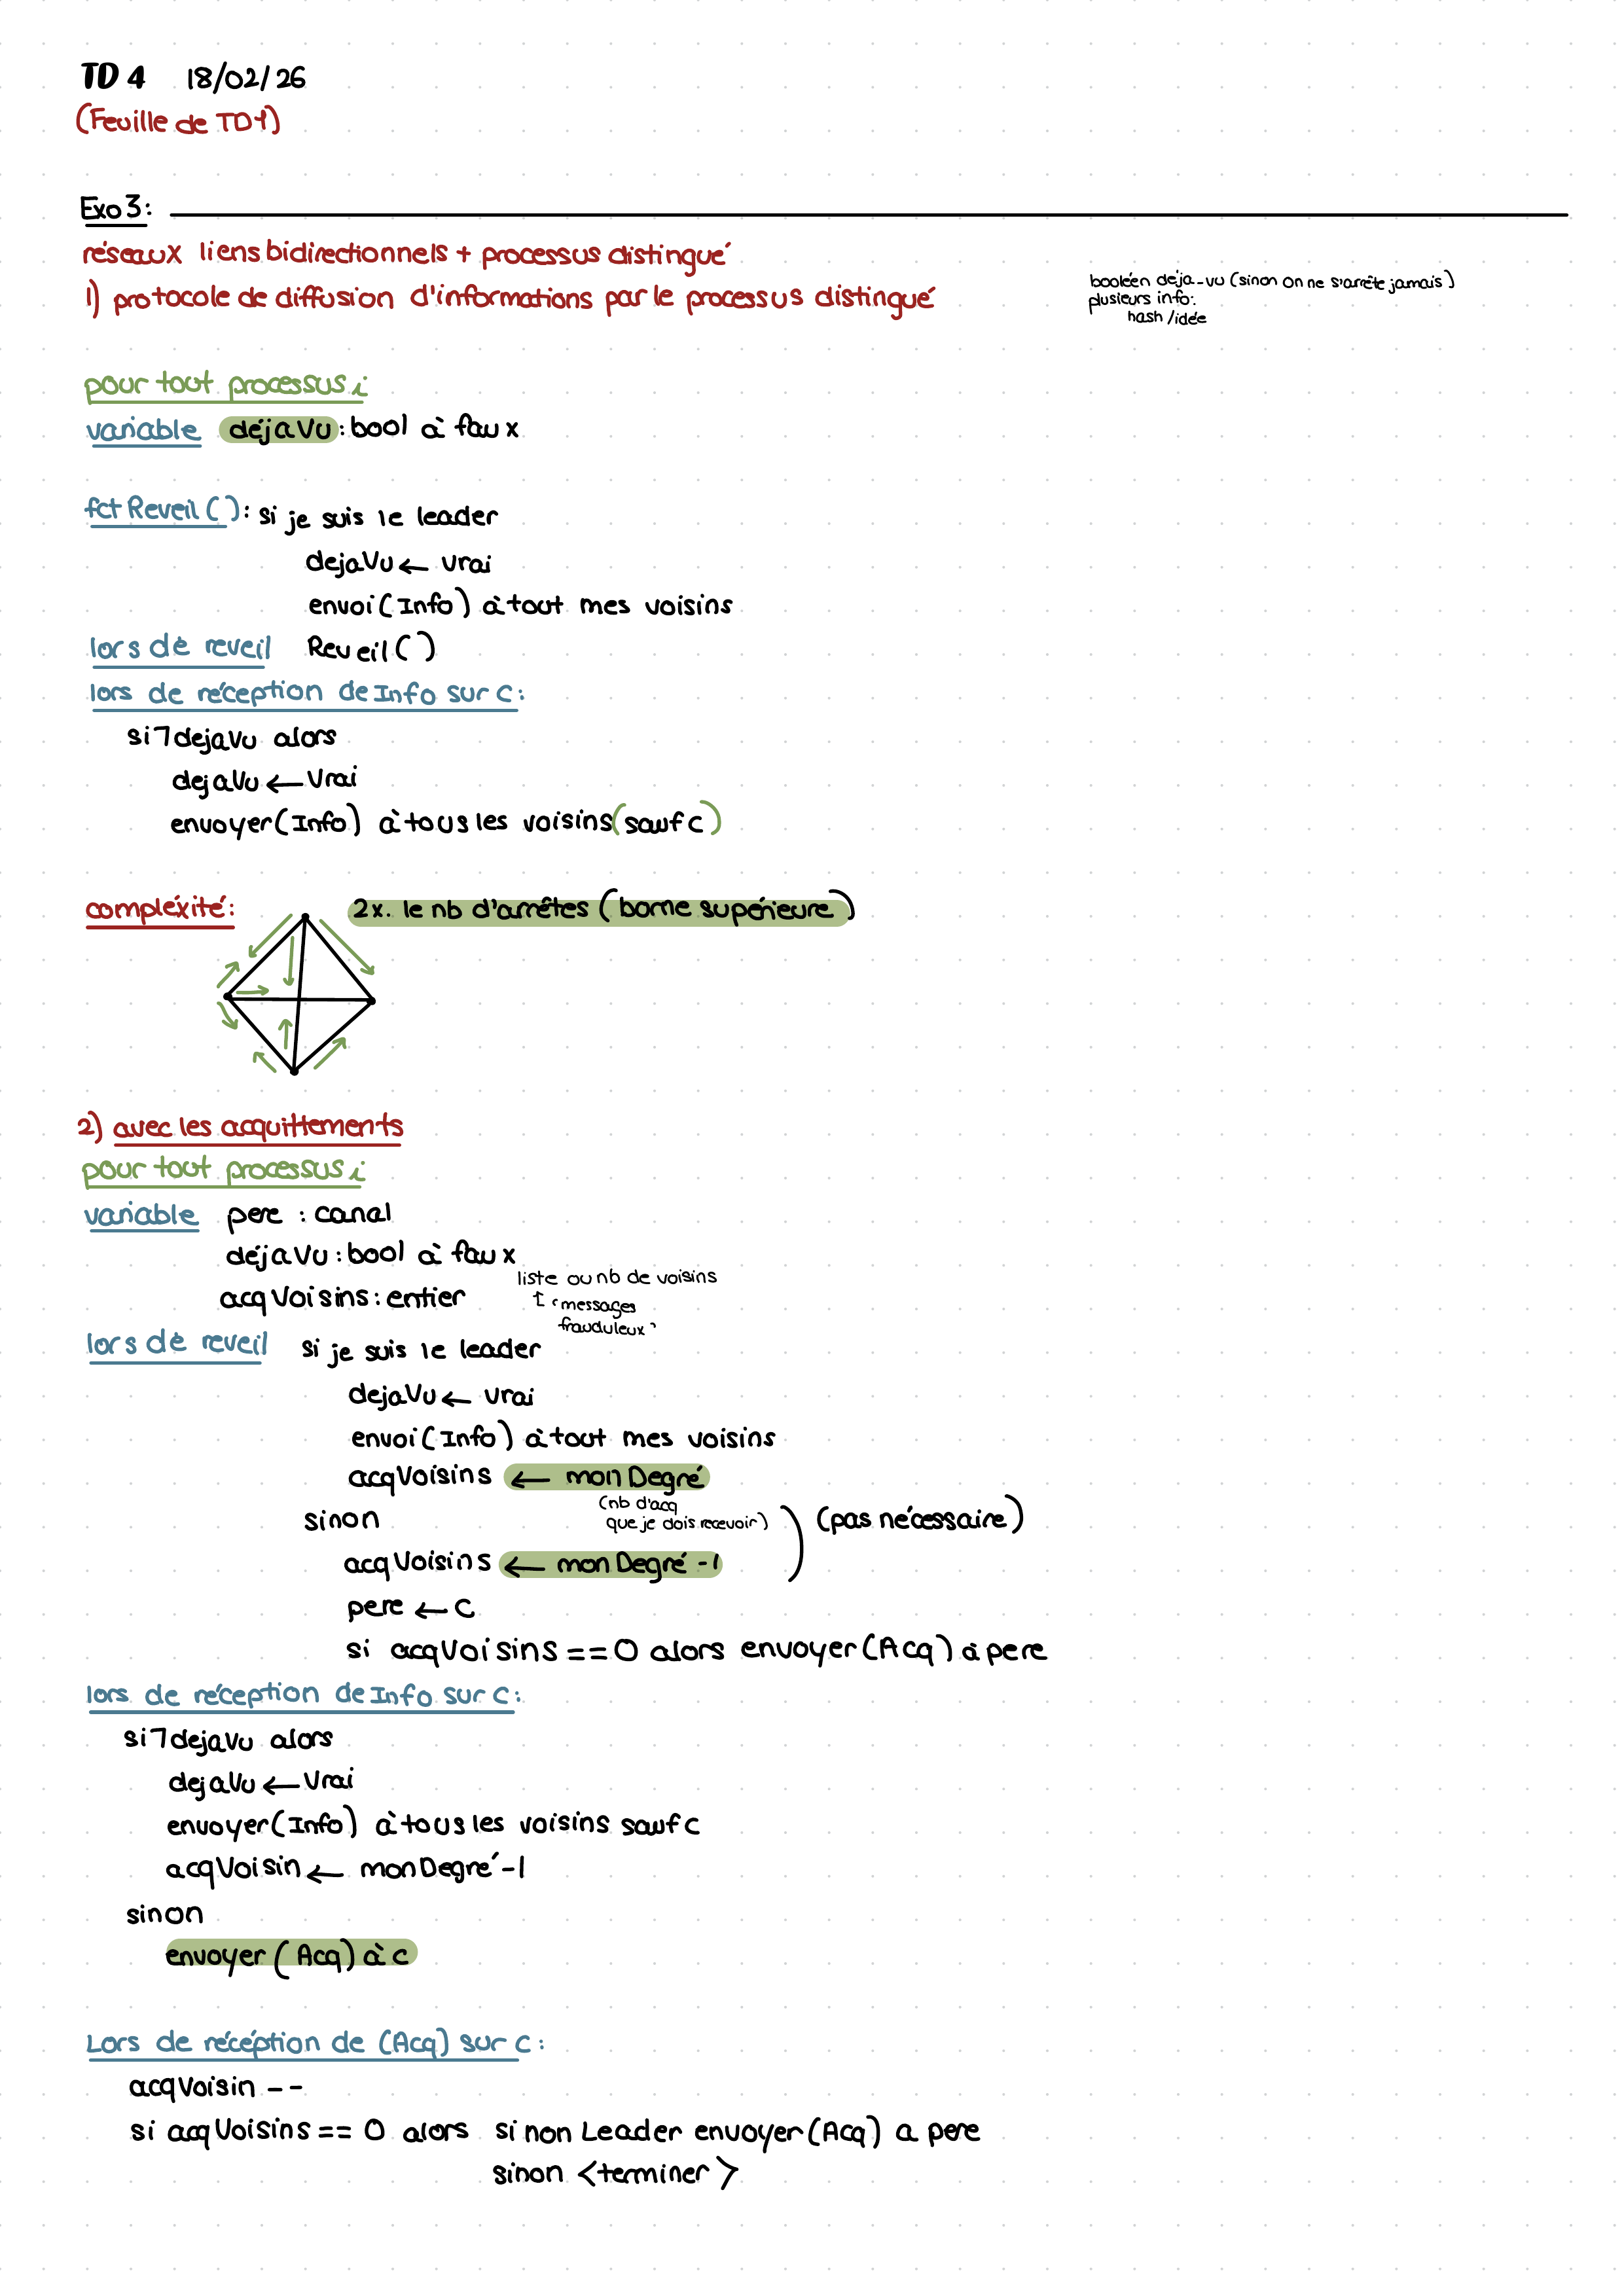 TD 4 18/02/26
(Feuille de TD1)
Exo3:
réseaux liens bidirectionnels + processus distingué
1) protocole de diffusion d'informations par le processus distingué
booléen déja-vu (sinon on ne s'arrête jamais)
plusieurs info:
hash /idée
pour tout processus i
variable déjaVu : bool à faux
fct Reveil ( ) : si je suis le leader
dejaVu ← vrai
envoi (Info) à tout mes voisins
lors dé reveil Reveil ( )
lors de réception de Info sur c :
si ¬ dejaVu alors
dejaVu ← Vrai
envoyer (Info) à tous les voisins (sauf c)
compléxité: 2x. le nb d'arrêtes (borne supérieure)
2) avec les acquittements
pour tout processus i
variable pere : canal
déjaVu : bool à faux
acqVoisins : entier
liste ou nb de voisins
messages
frauduleux
lors dé reveil si je suis le leader
dejaVu ← vrai
envoi (Info) à tout mes voisins
acqVoisins ← mon Degré
(nb d'acq
que je dois recevoir)
sinon (pas nécessaire)
acqVoisins ← mon Degré -1
pere ← c
si acqVoisins == 0 alors envoyer (Acq) à pere
lors de réception de Info sur c :
si ¬ dejaVu alors
dejaVu ← Vrai
envoyer (Info) à tous les voisins sauf c
acqVoisin ← mon Degré -1
sinon
envoyer (Acq) à c
Lors de récéption de (Acq) sur c :
acqVoisin --
si acqVoisins == 0 alors si non Leader envoyer (Acq) a pere
sinon <terminer>